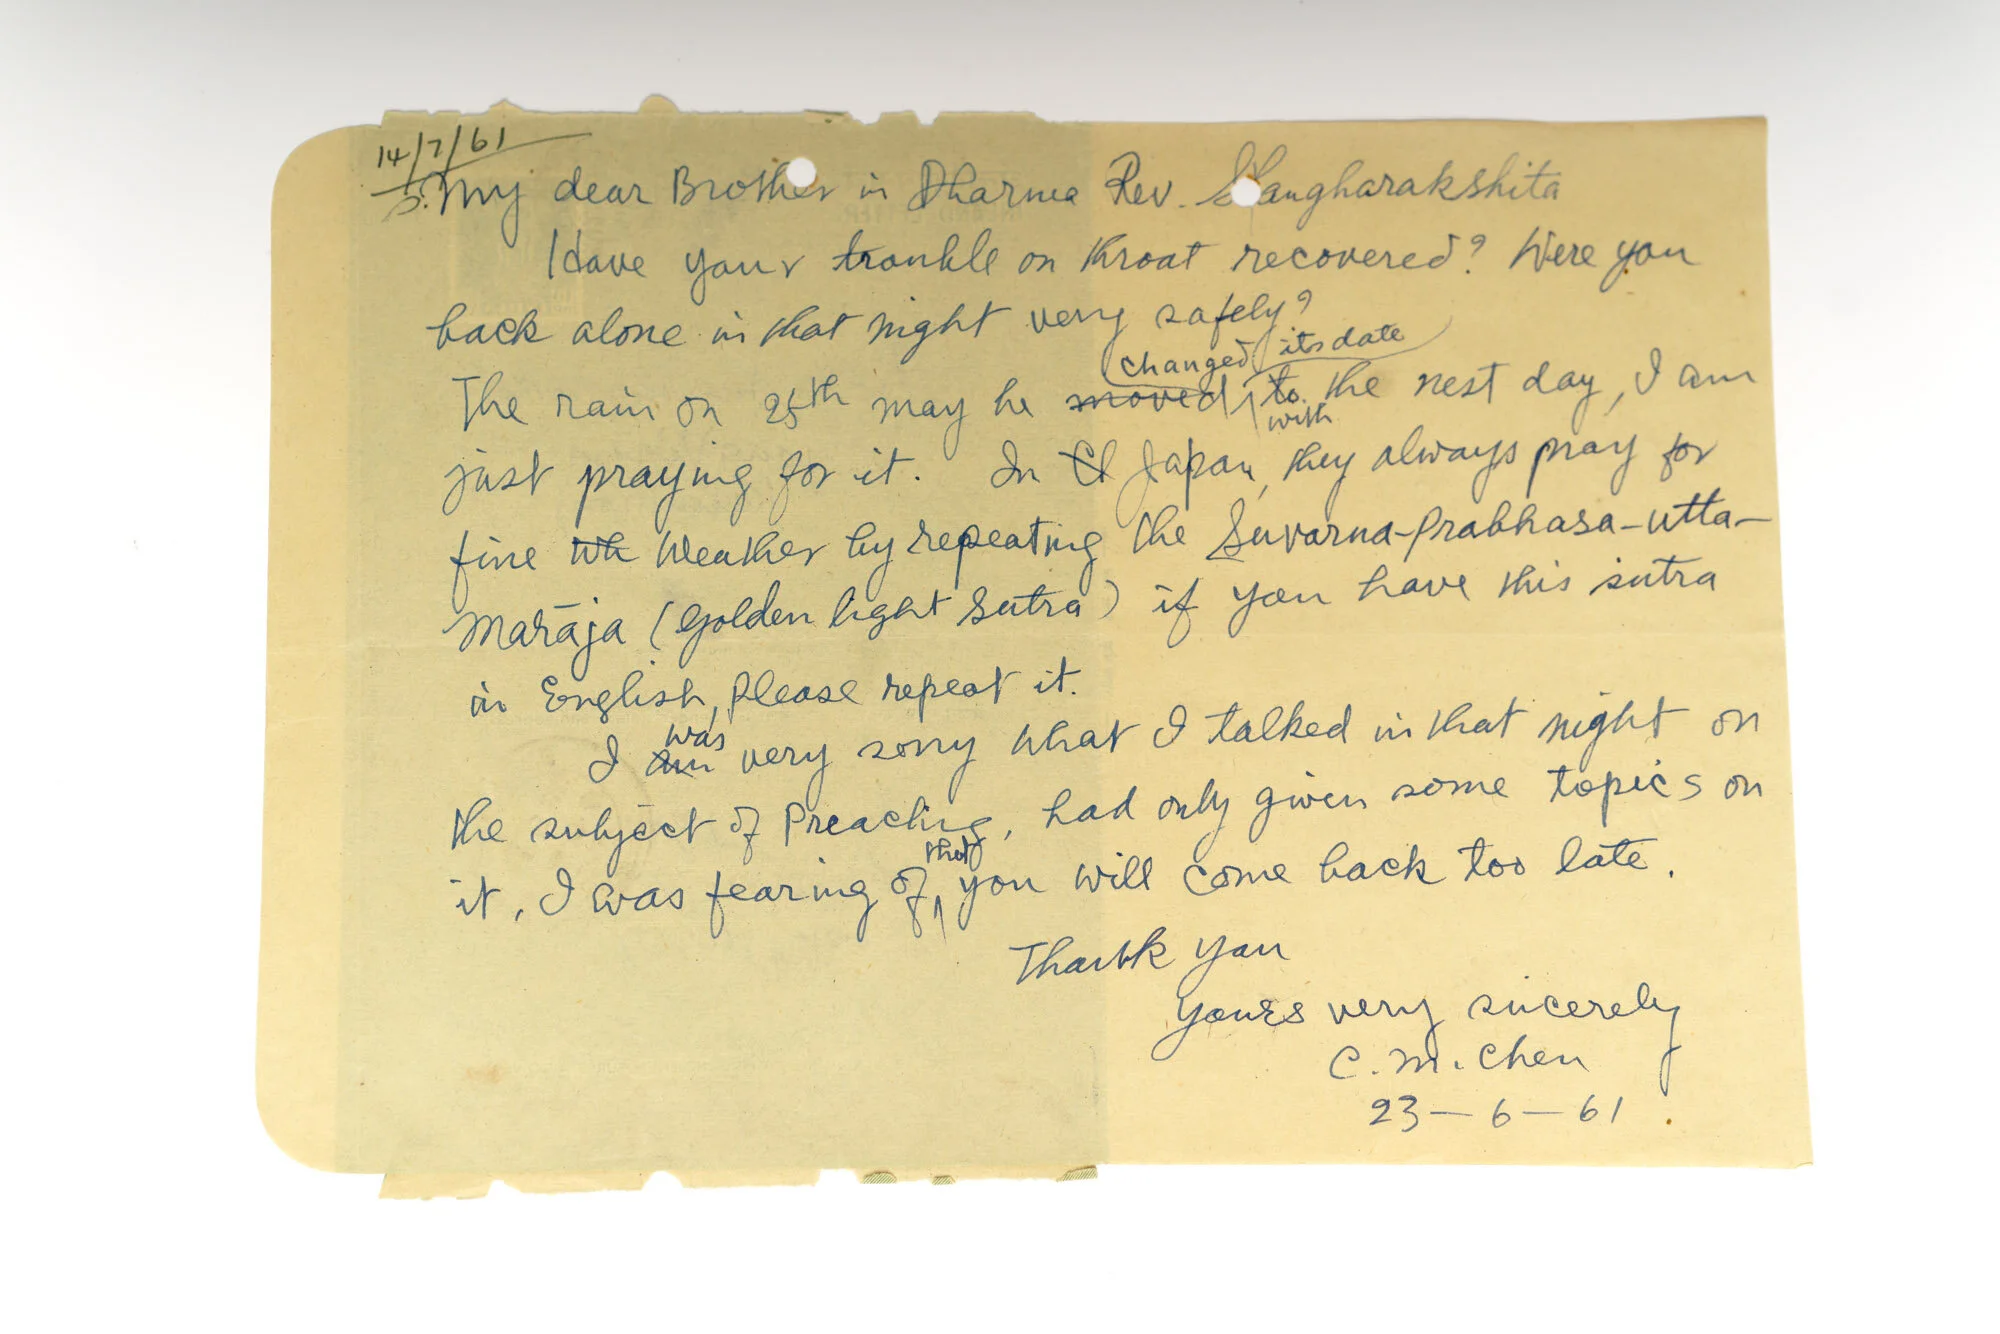 14/7/61
S. My dear Brother in Dharma Rev. Sangharakshita
Have your trouble on throat recovered? Were you
back alone in that night very safely?
changed its date
The rain on 25th may be moved to the nest day, I am
with
just praying for it. In Ch Japan, they always pray for
fine wh Weather by repeating the Suvarna-Prabhasa-Utta-
Marāja (Golden light Sutra) if you have this sutra
in English, Please repeat it.
was
I am very sorry what I talked in that night on
the subject of Preaching, had only given some topics on
that
it, I was fearing of you will come back too late.
Thank you
yours very sincerely
C. M. Chen
23-6-61